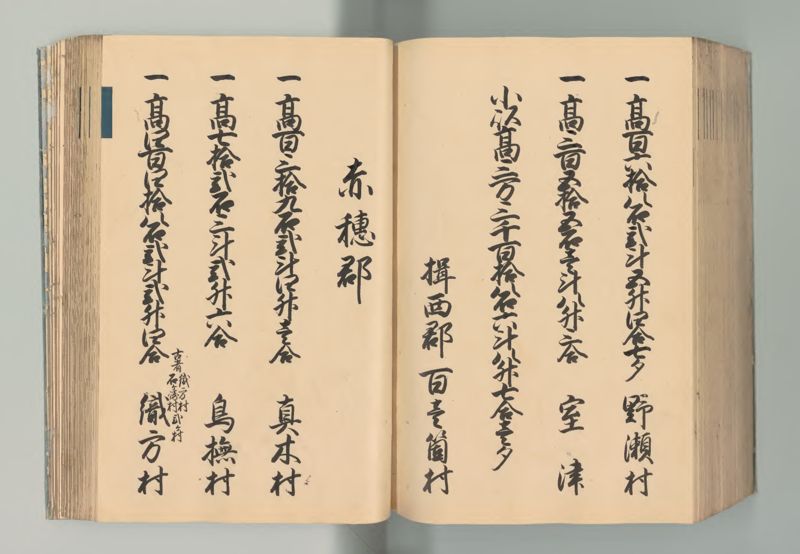 一 高百六拾八石弐斗五升四合七夕 野瀬村
一 高三百五拾五石壱斗八升三合 室津
小以高三万三千百拾八石六斗八升七合壱夕
揖西郡 百壱箇村
赤穂郡
一 高百三拾九石弐斗四升壱合 真木村
一 高七拾弐石三斗弐升六合 鳥撫村
一 高四百四拾八石弐斗弐升四合 織方村
古者 織方村
石ヶ崎村 弐ヶ村